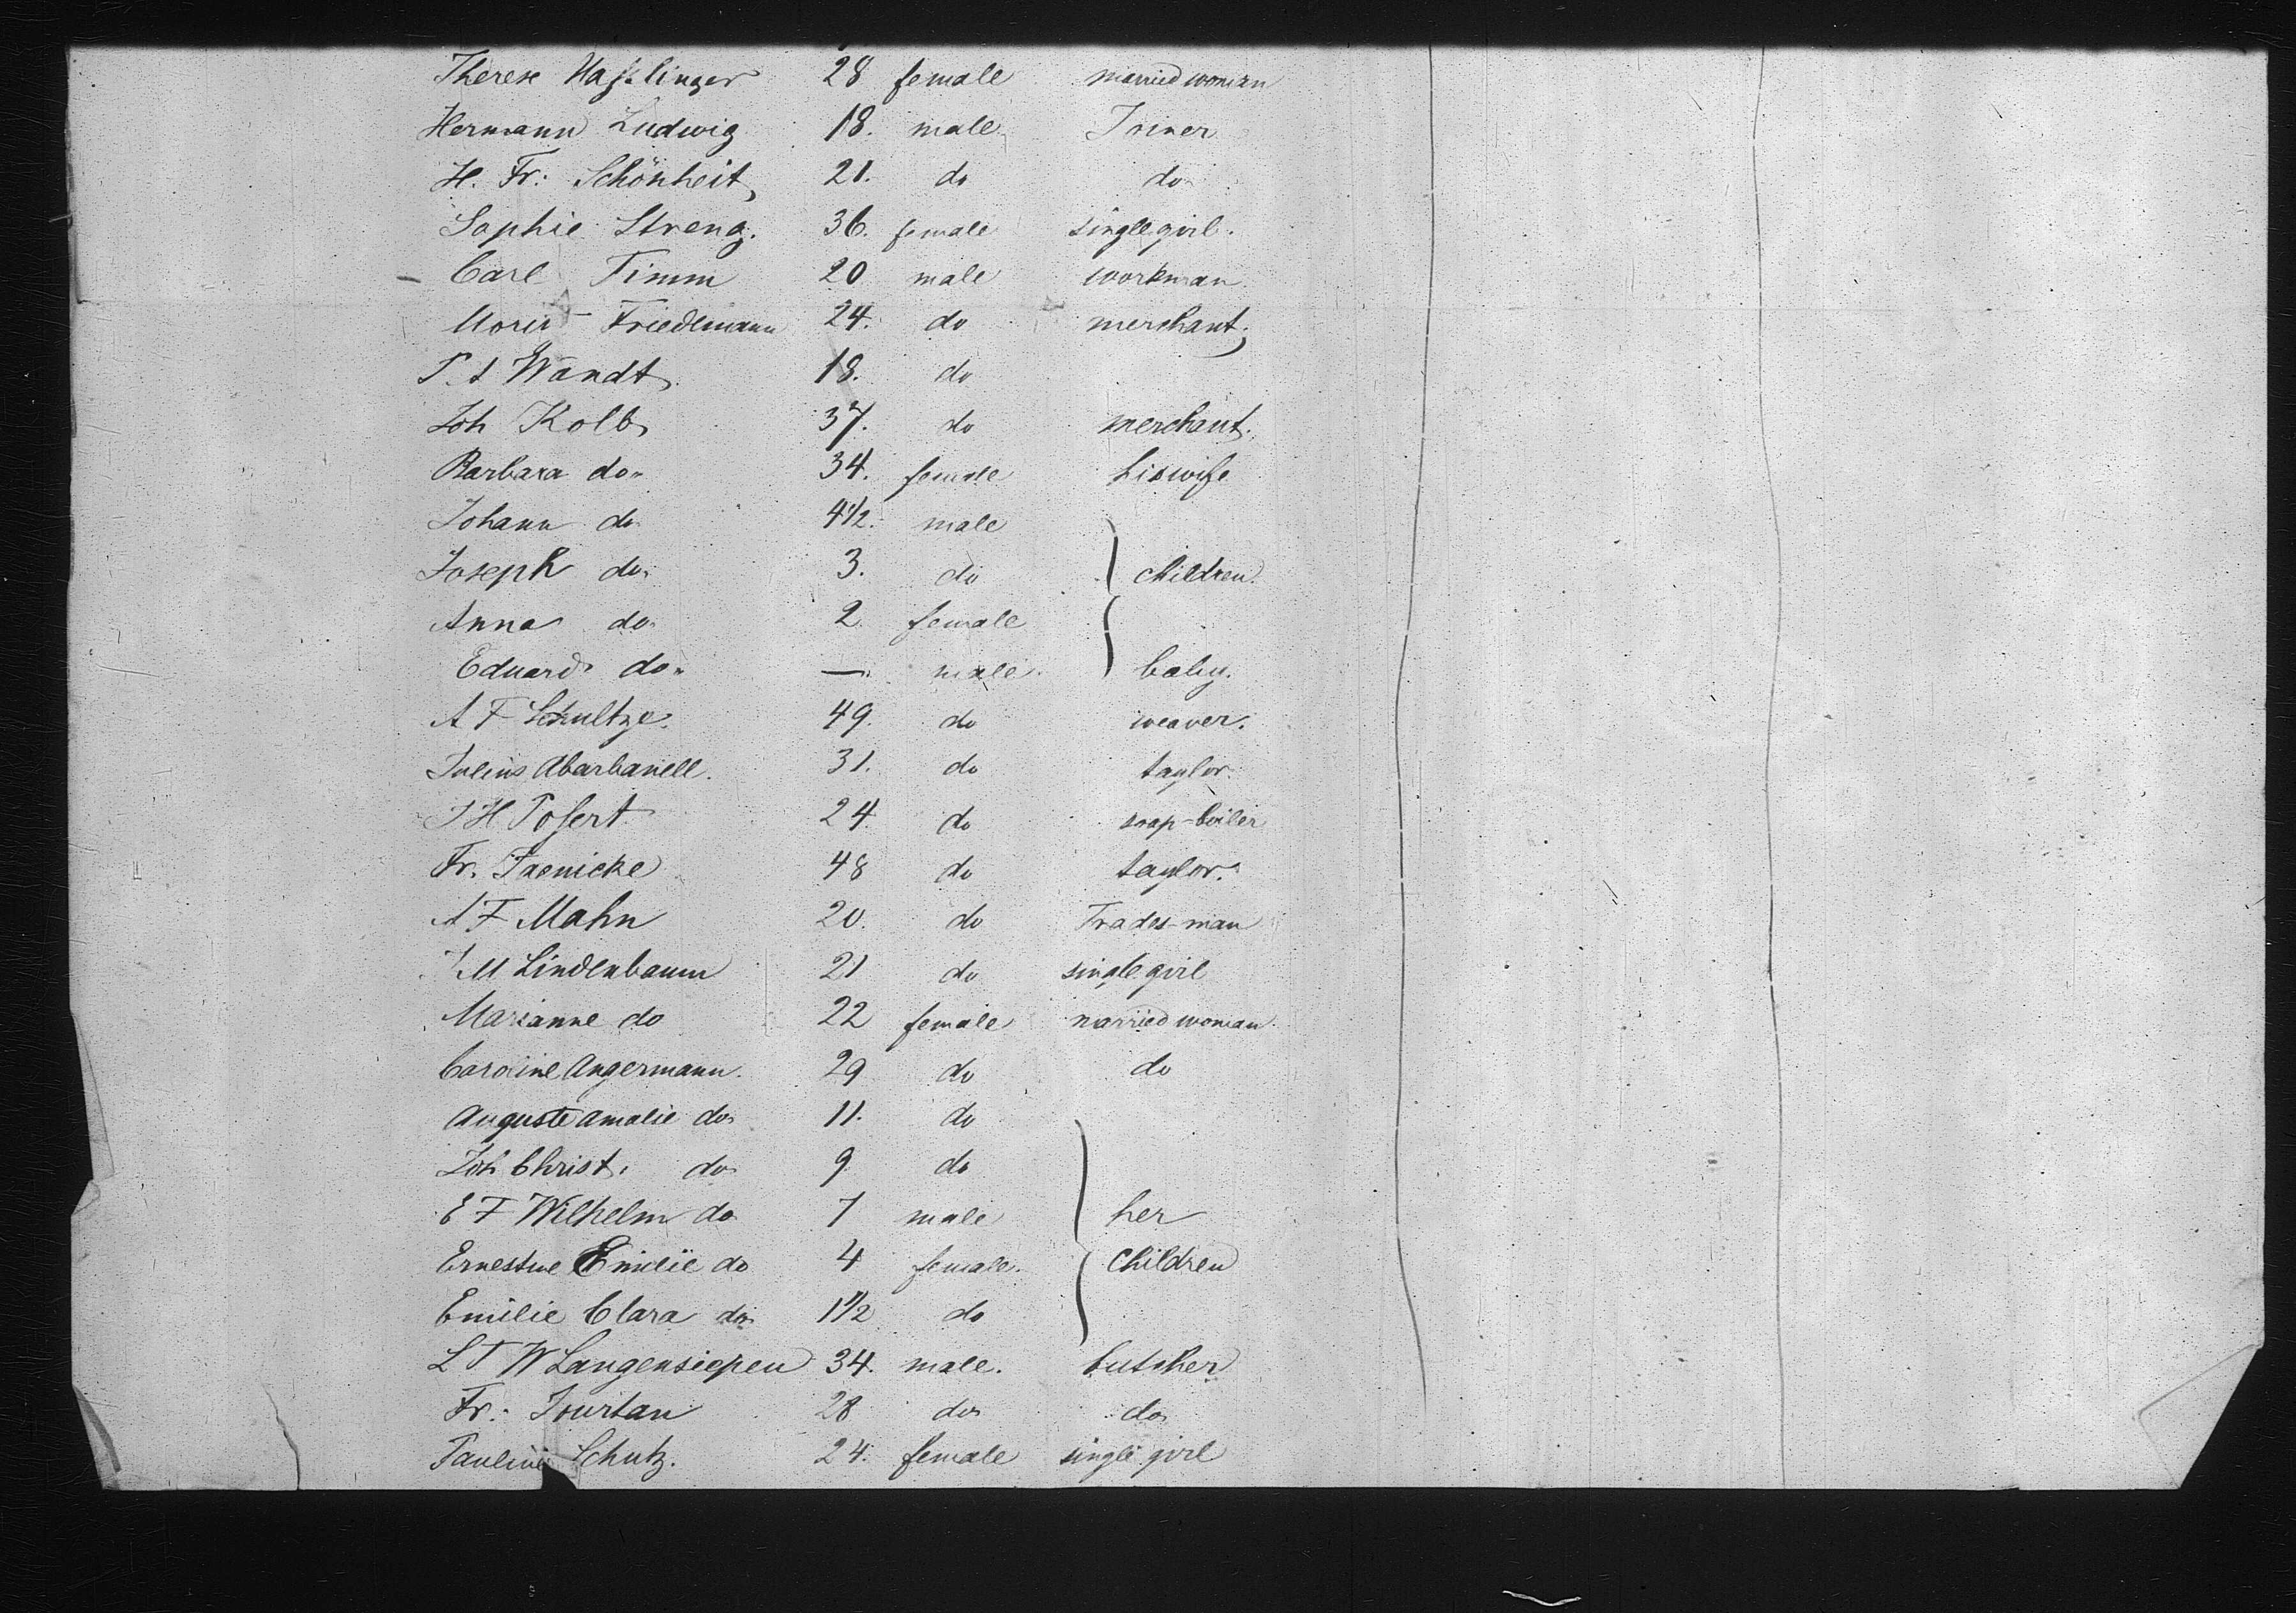 Therese Haßlinger 28 female married woman
Hermann Ludwig 18. male Joiner
H. Fr: Schönheit 21. do do
Sophie Streng. 36. female single girl.
Carl Timm 20 male workman
Moritz Friedemann 24. do merchant.
Wandt 18. do
Joh Kolb 37. do merchant.
Barbara do 34. female his wife
Johann do 4 1/2. male
Joseph do 3. do children.
Anna do 2 female
Eduard do — male baby.
A F Schultze 49. do weaver.
Julius Abarbanell. 31. do taylor
J H Poßert 24 do soap-boiler
Fr. Jaenicke 48 do taylor.
A F Mahn 20. do Trades-man
J M Lindenbaum 21 do single girl
Marianne do 22 female married woman
Caroline Angermann. 29 do do
Auguste Amalie do 11. do
Joh Christ. do 9 do
E F Wilhelm do 7 male her
Ernestine Emilie do 4 female. children
Emilie Clara do 1 1/2 do
L F W Langensiepen 34. male. butcher
Fr: Jourtan 28 do do
Pauline Schutz. 24. female single girl